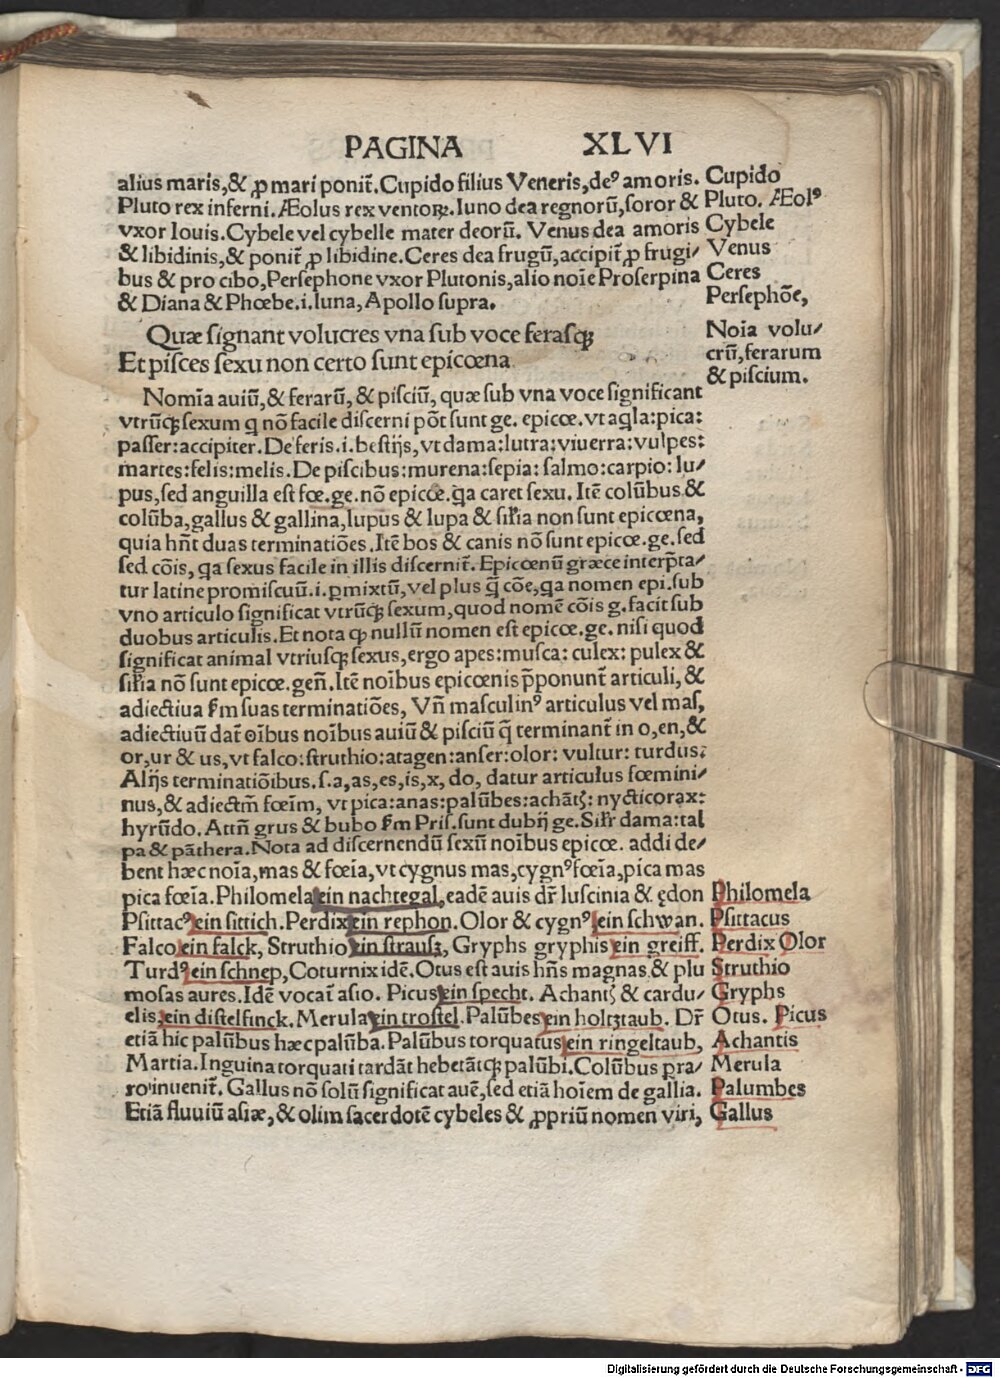 PAGINA XLVI
alius maris,& ꝓ mari ponit̄. Cupido filius Veneris,deꝰ amoris. Cupido
Pluto rex inferni. Æolus rex ventoꝝ. Iuno dea regnorū,soror & Pluto. Æolꝰ
vxor Iouis. Cybele vel cybelle mater deorū. Venus dea amoris Cybele
& libidinis,& ponit̄ ꝓ libidine. Ceres dea frugū,accipit̄ ꝓ frugi/ Venus
bus & pro cibo, Persephone vxor Plutonis,alio noīe Proserpina Ceres
& Diana & Phœbe.i.luna, Apollo supra. Persephōe,
Quæ signant volucres vna sub voce ferasqꝫ Noīa volu/
Et pisces sexu non certo sunt epicœna crū,ferarum
& piscium.
Nomīa auiū,& ferarū, & pisciū, quæ sub vna voce significant
vtrūqꝫ sexum q nō facile discerni pōt sunt ge. epicœ. vt aq̄la:pica:
passer:accipiter. De feris.i.bestijs, vt dama:lutra:viuerra:vulpes:
martes:felis:melis. De piscibus:murena:sepia: salmo:carpio: lu/
pus,sed anguilla est fœ.ge.nō epicœ.q̄a caret sexu. Itē colūbus &
colūba,gallus & gallina,lupus & lupa & sīlia non sunt epicœna,
quia hn̄t duas terminatiōes. Itē bos & canis nō sunt epicœ.ge.sed
sed cōis, q̄a sexus facile in illis discernit̄. Epicœnū græce interp̄ta/
tur latine promiscuū.i.ꝑmixtū,vel plus q̄ cōe,q̄a nomen epi.sub
vno articulo significat vtrūqꝫ sexum,quod nomē cōis g.facit sub
duobus articulis. Et nota ꝙ nullū nomen est epicœ.ge. nisi quod
significat animal vtriusqꝫ sexus,ergo apes:musca: culex: pulex &
sīlia nō sunt epicœ.gen̄. Itē noībus epicœnis p̄ponunt̄ articuli, &
adiectiua s̄m suas terminatiōes, Vn̄ masculinꝰ articulus vel mas,
adiectiuū dat̄ oībus noībus auiū & pisciū q̄ terminant̄ in o,en,&
or,ur & us,vt falco:struthio:atagen:anser:olor: vultur: turdus:
Alijs terminatiōibus.s.a,as,es,is,x, do, datur articulus fœmini/
nus,& adiectm̄ fœīm, vt pica:anas:palūbes:achātꝫ: nycticorax:
hyrūdo. Attn̄ grus & bubo s̄m Pris.sunt dubij ge. Sīlr dama:tal
pa & pāthera. Nota ad discernendū sexū noībus epicœ. addi de/
bent hæc noīa,mas & fœīa,vt cygnus mas,cygnꝰ fœīa,pica mas
pica fœīa. Philomela ein nachtegal,eadē auis dr̄ luscinia & ędon Philomela
Psittacꝰ ein sittich. Perdix ein rephon. Olor & cygnꝰ ein schwan. Psittacus
Falco ein falck, Struthio ein strausz, Gryphs gryphis ein greiff. Perdix Olor
Turdꝰ ein schnep, Coturnix idē. Otus est auis hn̄s magnas & plu Struthio
mosas aures. Idē vocat̄ asio. Picus ein specht. Achantꝫ & cardu/ Gryphs
elis ein distelfinck. Merula ein trostel. Palūbes ein holtztaub. Dr̄ Otus. Picus
etiā hic palūbus hæc palūba. Palūbus torquatus ein ringeltaub, Achantis
Martia. Inguina torquati tardāt hebetātqꝫ palūbi. Colūbus ꝑra/ Merula
ro inuenit̄. Gallus nō solū significat auē,sed etiā hoīem de gallia. Palumbes
Etiā fluuiū asiæ,& olim sacerdotē cybeles & ꝓpriū nomen viri, Gallus
Digitalisierung gefördert durch die Deutsche Forschungsgemeinschaft - DFG